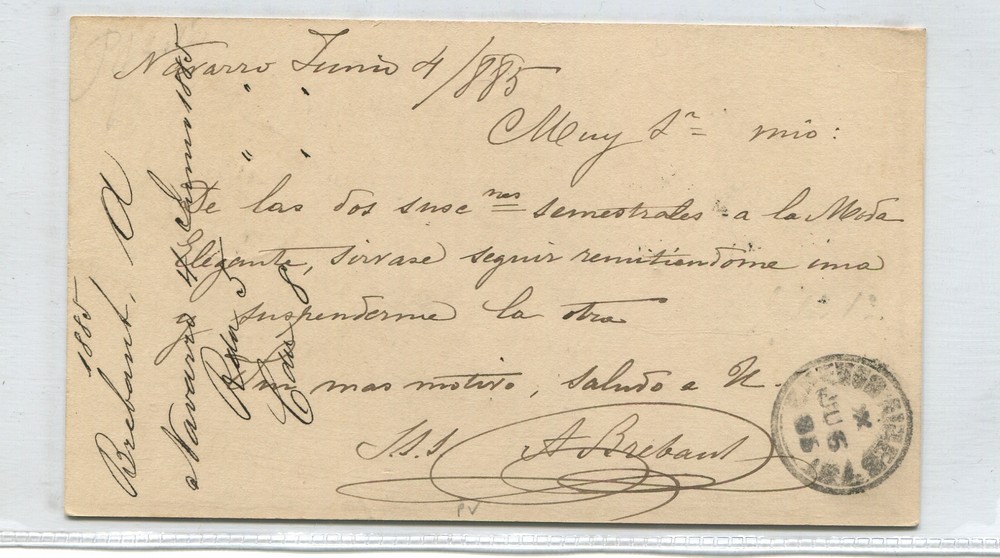 Navarro Junio 4/885
Muy Sr mio:
De las dos susc nes semestrales a la Moda
Elegante, sirvase seguir remitiendome una
y suspenderme la otra
Sin mas motivo, saludo a U.
S.S.S A Brebant
1885
Brebant, A
Navarro 4 Junio 1885
" "
" "
5
8
JU 5
85
PV